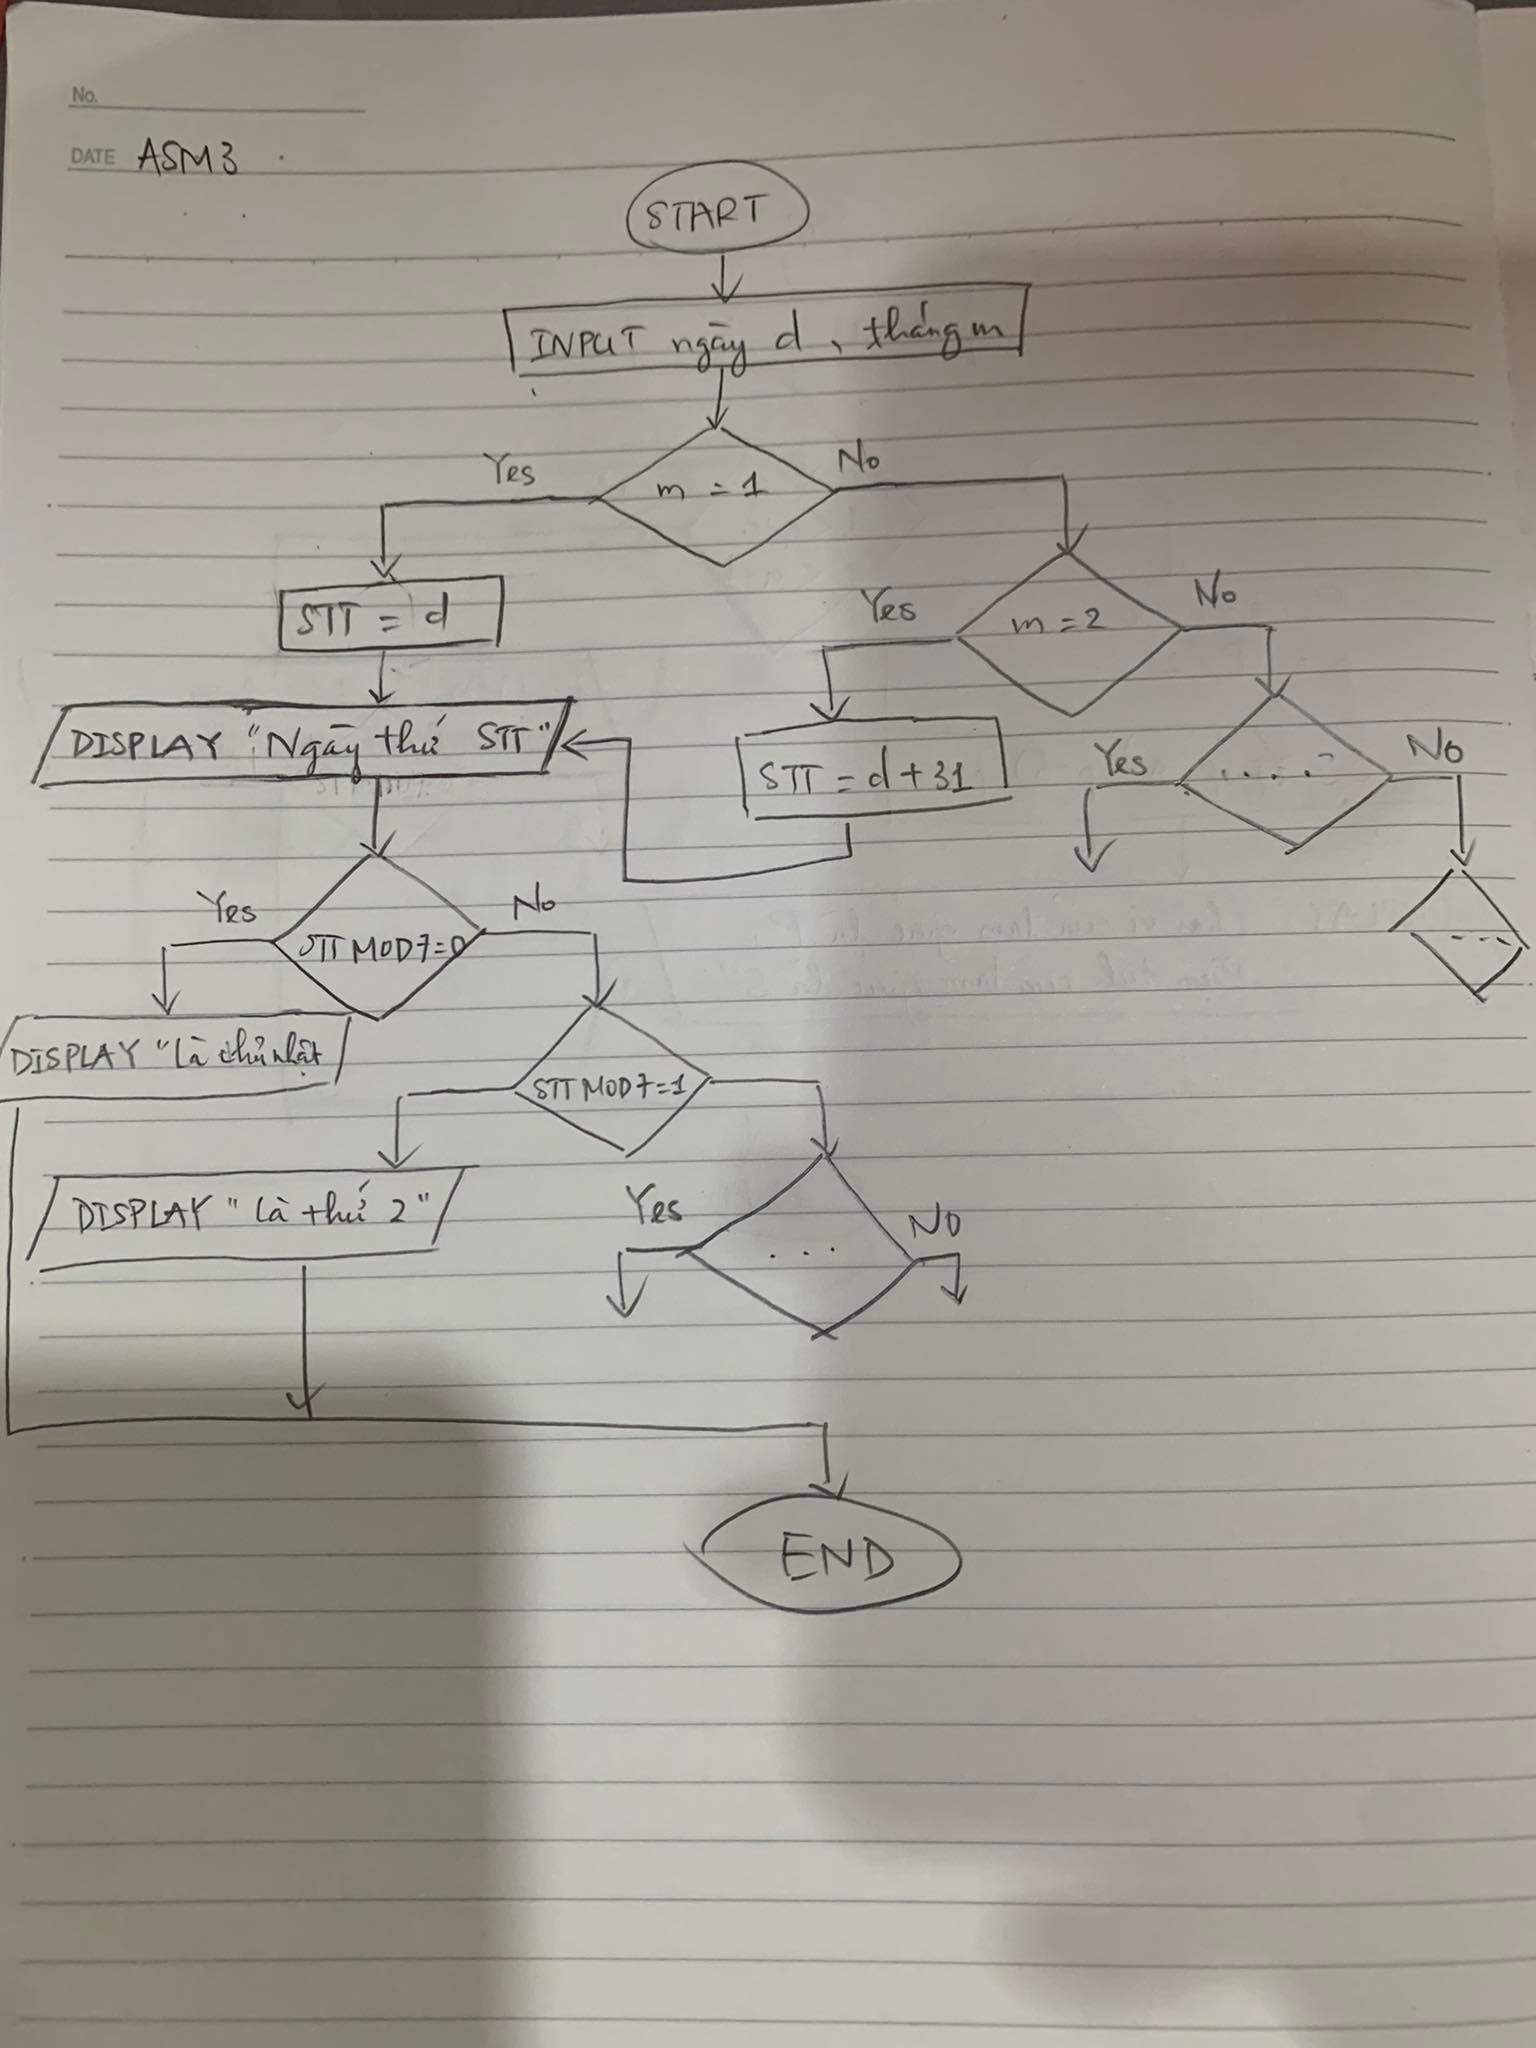 No.
DATE ASM3
START
INPUT ngày d, tháng m
m = 1
Yes
No
STT = d
m = 2
Yes
No
DISPLAY "Ngày thứ STT"
STT = d + 31
....
Yes
No
----
STT MOD 7 = 0
Yes
No
DISPLAY "là chủ nhật
STT MOD 7 = 1
DISPLAY "là thứ 2"
...
Yes
NO
END